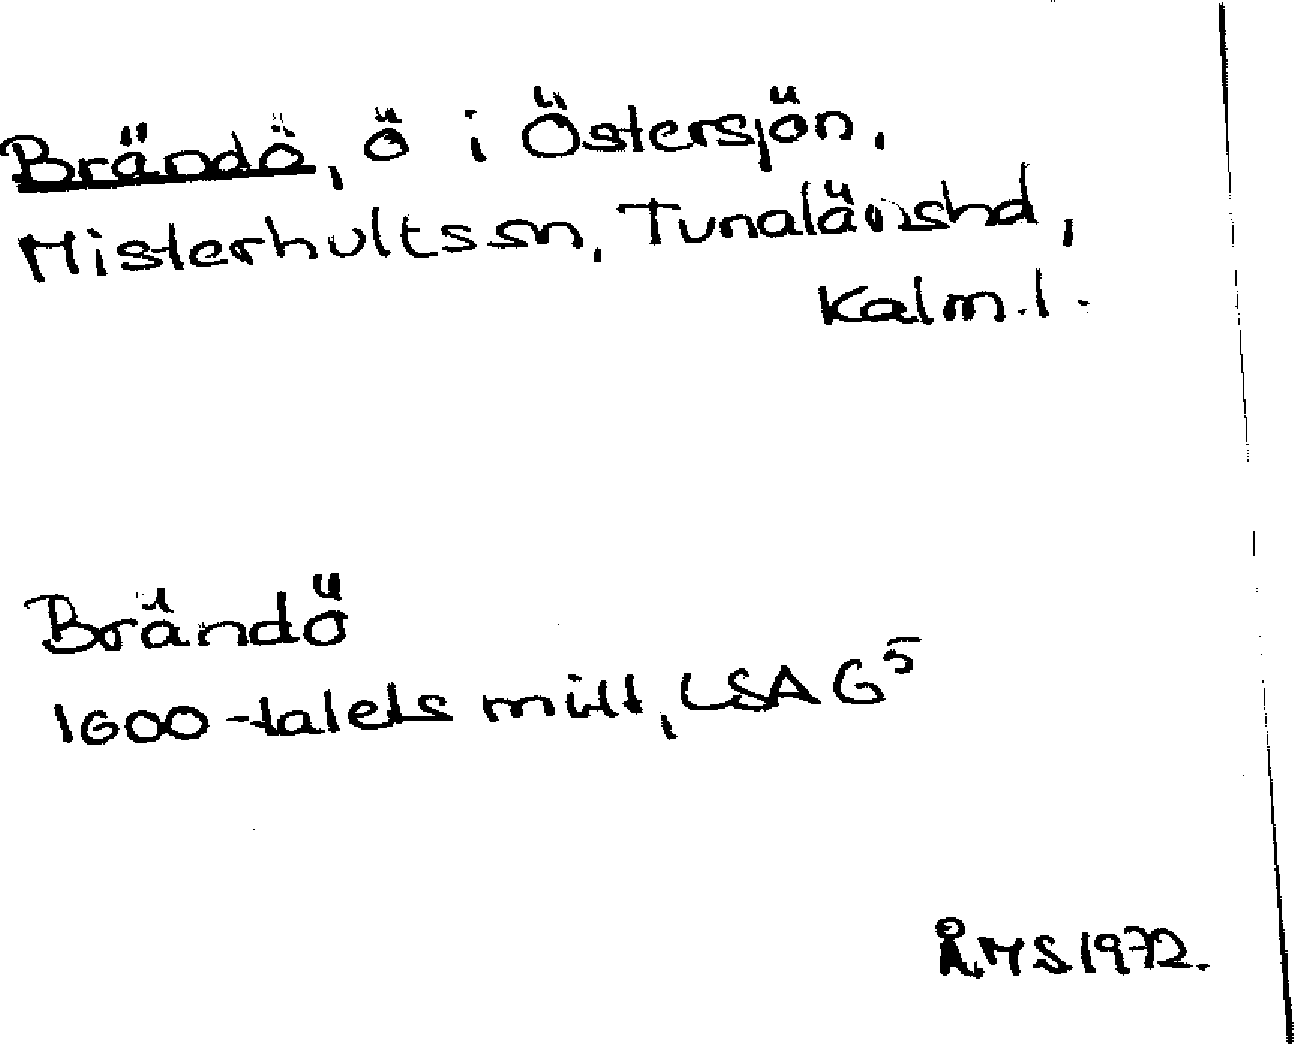 Brändö, ö i Östersjön,
Misterhultssn, Tunalänshd,
Kalm.l.
Brändö
1600-talets mitt, LSA G⁵
ÅMS 1972.